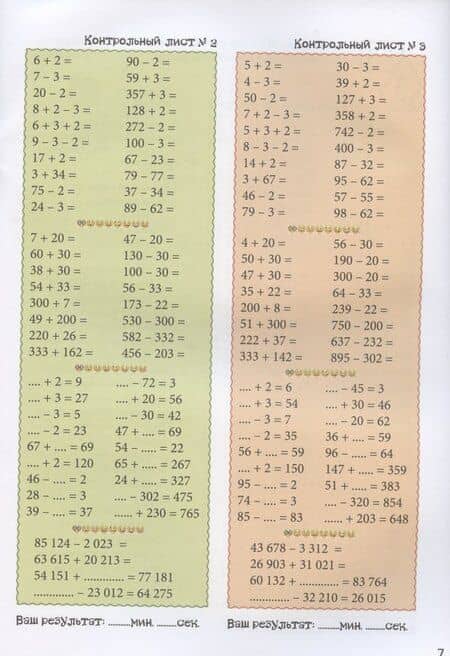 Контрольный лист № 2
6 + 2 = 90 – 2 =
7 – 3 = 59 + 3 =
20 – 2 = 357 + 3 =
8 + 2 – 3 = 128 + 2 =
6 + 3 + 2 = 272 – 2 =
9 – 3 – 2 = 100 – 3 =
17 + 2 = 67 – 23 =
3 + 34 = 79 – 77 =
75 – 2 = 37 – 34 =
24 – 3 = 89 – 62 =
7 + 20 = 47 – 20 =
60 + 30 = 130 – 30 =
38 + 30 = 100 – 30 =
54 + 33 = 56 – 33 =
300 + 7 = 173 – 22 =
49 + 200 = 530 – 300 =
220 + 26 = 582 – 332 =
333 + 162 = 456 – 203 =
.... + 2 = 9 .... – 72 = 3
.... + 3 = 27 .... + 20 = 56
.... – 3 = 5 .... – 30 = 42
.... – 2 = 23 47 + .... = 69
67 + .... = 69 54 – ..... = 22
.... + 2 = 120 65 + .... = 267
46 – .... = 2 24 + .... = 327
28 – .... = 3 .... – 302 = 475
39 – .... = 37 ..... + 230 = 765
85 124 – 2 023 =
63 615 + 20 213 =
54 151 + ............. = 77 181
............. – 23 012 = 64 275
Ваш результат: ........мин. ......сек.
Контрольный лист № 3
5 + 2 = 30 – 3 =
4 – 3 = 39 + 2 =
50 – 2 = 127 + 3 =
7 + 2 – 3 = 358 + 2 =
5 + 3 + 2 = 742 – 2 =
8 – 3 – 2 = 400 – 3 =
14 + 2 = 87 – 32 =
3 + 67 = 95 – 62 =
46 – 2 = 57 – 55 =
79 – 3 = 98 – 62 =
4 + 20 = 56 – 30 =
50 + 30 = 190 – 20 =
47 + 30 = 300 – 20 =
35 + 22 = 64 – 33 =
200 + 8 = 239 – 22 =
51 + 300 = 750 – 200 =
222 + 37 = 637 – 232 =
333 + 142 = 895 – 302 =
.... + 2 = 6 .... – 45 = 3
.... + 3 = 54 .... + 30 = 46
.... – 3 = 7 .... – 20 = 62
.... – 2 = 35 36 + .... = 59
56 + .... = 59 96 – ..... = 64
.... + 2 = 150 147 + .... = 359
95 – .... = 2 51 + .... = 383
74 – .... = 3 .... – 320 = 854
85 – .... = 83 ...... + 203 = 648
43 678 – 3 312 =
26 903 + 31 021 =
60 132 + ............ = 83 764
.............. – 32 210 = 26 015
Ваш результат: ........мин. ......сек.
7